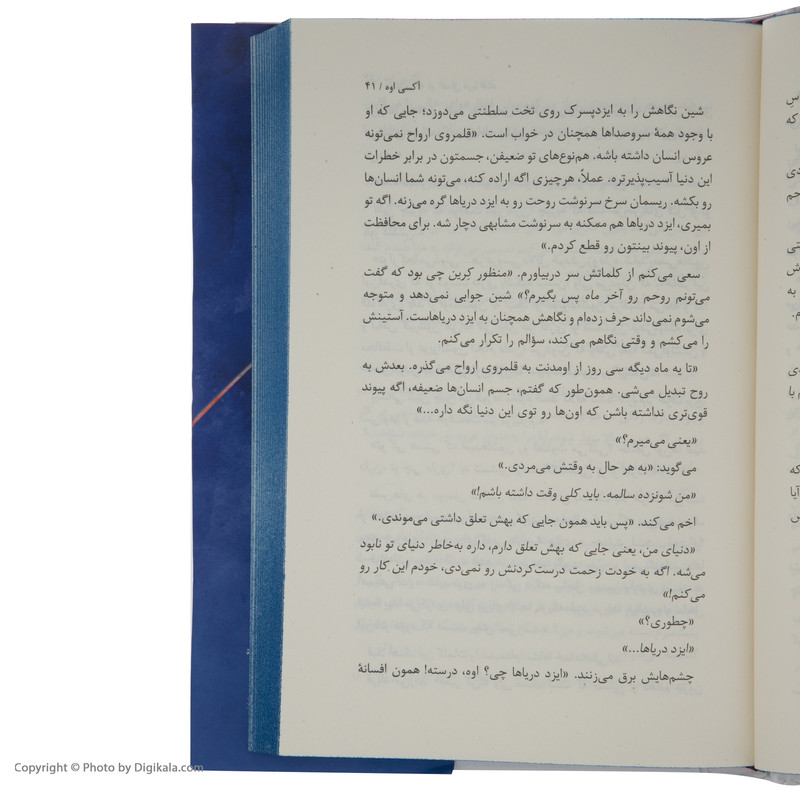 اکسی اوه / ۴۱
شین نگاهش را به ایزدپسرک روی تخت سلطنتی می‌دوزد؛ جایی که او
با وجود همهٔ سروصداها همچنان در خواب است. «قلمروی ارواح نمی‌تونه
عروس انسان داشته باشه. هم‌نوع‌های تو ضعیفن، جسمتون در برابر خطرات
این دنیا آسیب‌پذیرتره. عملاً، هرچیزی اگه اراده کنه، می‌تونه شما انسان‌ها
رو بکشه. ریسمان سرخ سرنوشت روحت رو به ایزد دریاها گره می‌زنه. اگه تو
بمیری، ایزد دریاها هم ممکنه به سرنوشت مشابهی دچار شه. برای محافظت
از اون، پیوند بینتون رو قطع کردم.»
سعی می‌کنم از کلماتش سر دربیاورم. «منظور کِرین چی بود که گفت
می‌تونم روحم رو آخر ماه پس بگیرم؟» شین جوابی نمی‌دهد و متوجه
می‌شوم نمی‌داند حرف زده‌ام و نگاهش همچنان به ایزد دریاهاست. آستینش
را می‌کشم و وقتی نگاهم می‌کند، سؤالم را تکرار می‌کنم.
«تا یه ماه دیگه سی روز از اومدنت به قلمروی ارواح می‌گذره. بعدش به
روح تبدیل می‌شی. همون‌طور که گفتم، جسم انسان‌ها ضعیفه، اگه پیوند
قوی‌تری نداشته باشن که اون‌ها رو توی این دنیا نگه داره...»
«یعنی می‌میرم؟»
می‌گوید: «به هر حال به وقتش می‌مردی.»
«من شونزده سالمه. باید کلی وقت داشته باشم!»
اخم می‌کند. «پس باید همون جایی که بهش تعلق داشتی می‌موندی.»
«دنیای من، یعنی جایی که بهش تعلق دارم، داره به‌خاطر دنیای تو نابود
می‌شه. اگه به خودت زحمت درست‌کردنش رو نمی‌دی، خودم این کار رو
می‌کنم!»
«چطوری؟»
«ایزد دریاها...»
چشم‌هایش برق می‌زنند. «ایزد دریاها چی؟ اوه، درسته! همون افسانهٔ
Copyright © Photo by Digikala.com